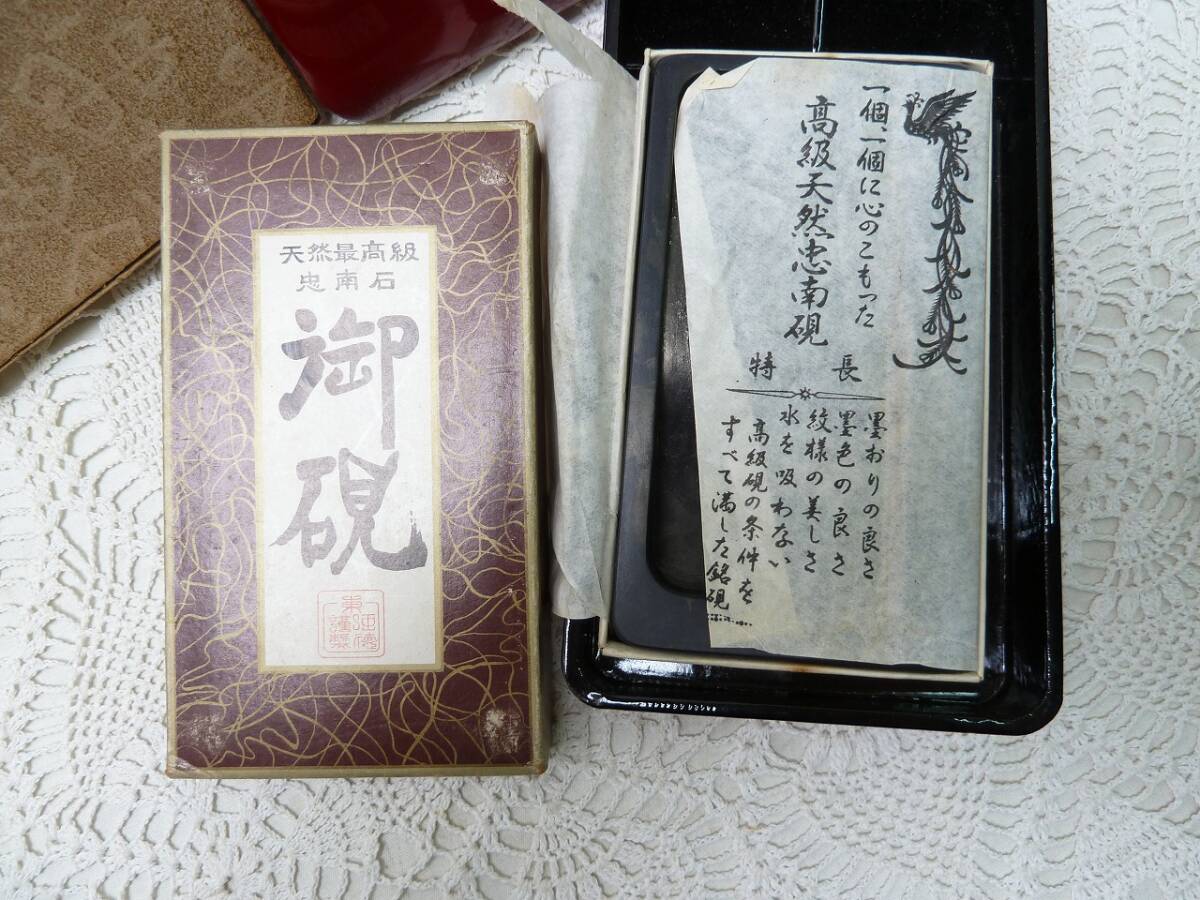 天然最高級
忠南石
御硯
一個、一個に心のこもった
高級天然忠南硯
特長
墨おりの良さ
墨色の良さ
紋様の美しさ
水を吸わない
高級硯の条件を
すべて満した銘硯